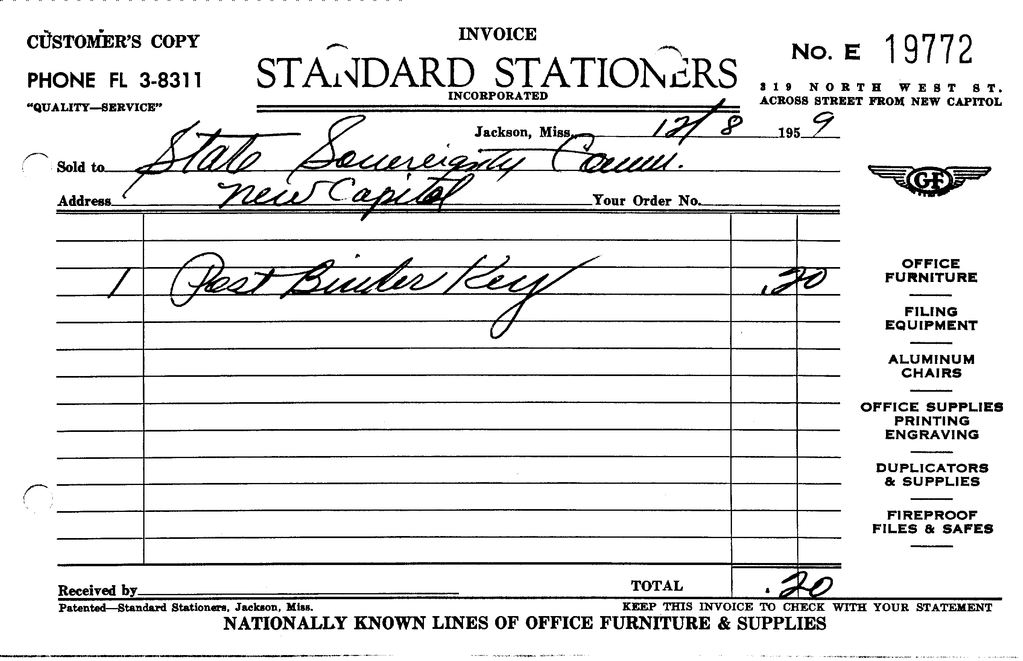 CUSTOMER'S COPY
INVOICE
No. E 19772
PHONE FL 3-8311
STANDARD STATIONERS
"QUALITY—SERVICE"
INCORPORATED
319 NORTH WEST ST.
ACROSS STREET FROM NEW CAPITOL
Jackson, Miss. 12/8 1959
Sold to State Sovereignty Comm.
Address New Capitol Your Order No.
GF
1 Post Binder Key .20
OFFICE
FURNITURE
FILING
EQUIPMENT
ALUMINUM
CHAIRS
OFFICE SUPPLIES
PRINTING
ENGRAVING
DUPLICATORS
& SUPPLIES
FIREPROOF
FILES & SAFES
Received by TOTAL .20
Patented—Standard Stationers, Jackson, Miss. KEEP THIS INVOICE TO CHECK WITH YOUR STATEMENT
NATIONALLY KNOWN LINES OF OFFICE FURNITURE & SUPPLIES